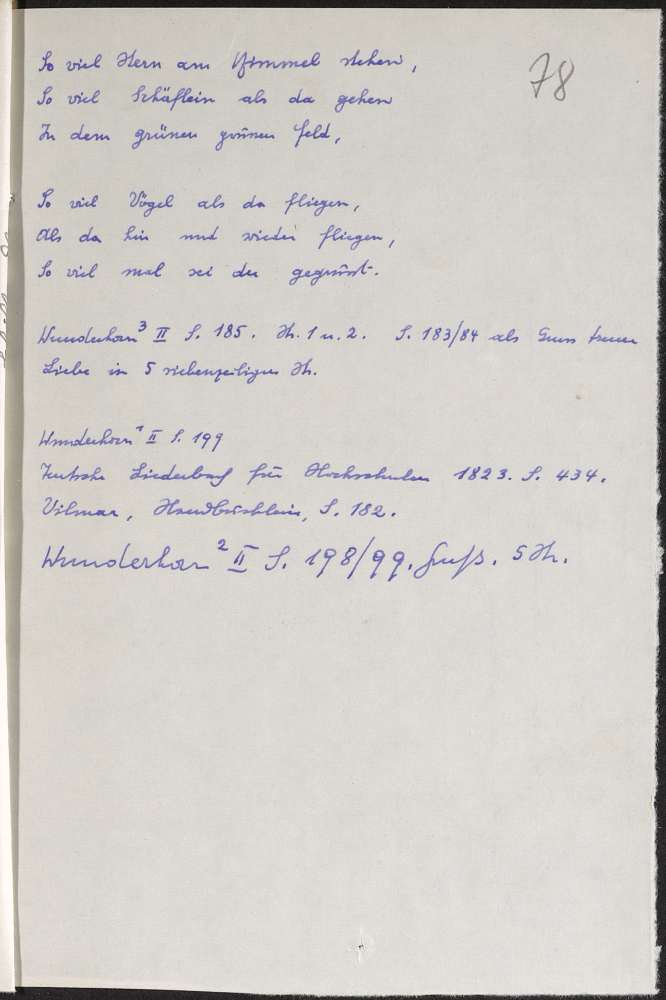 78
So viel Stern am Himmel stehen,
So viel Schäflein als da gehen
In dem grünen grünen Feld,
So viel Vögel als da fliegen,
Als da hin und wieder fliegen,
So viel mal sei du gegrüsst.
Wunderhorn³ II S. 185. Str. 1 u. 2. S. 183/84 als Gruss treuer
Liebe in 5 siebenzeiligen Str.
Wunderhorn¹ II S. 199
Teutsche Liederbuch für Hochschulen 1823. S. 434.
Vilmar, Handbüchlein, S. 182.
Wunderhorn² II S. 198/99. Gruß. 5 Str.